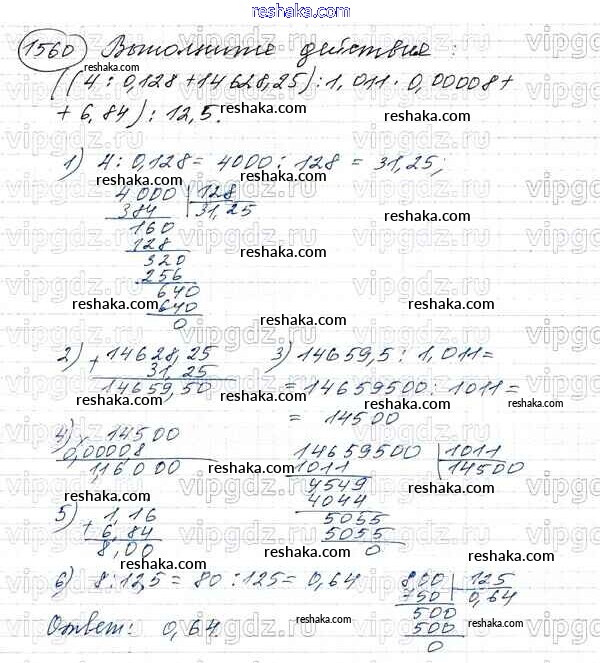 reshaka.com
1560 Выполните действия:
((4 : 0,128 + 14628,25) : 1,011 · 0,00008 +
+ 6,84) : 12,5.
1) 4 : 0,128 = 4000 : 128 = 31,25;
4000 | 128
384 31,25
160
128
320
256
640
640
0
2) + 14628,25
31,25
14659,50
3) 14659,5 : 1,011 =
= 14659500 : 1011 =
= 14500
14659500 | 1011
1011 14500
4549
4044
5055
5055
0
4) 14500
0,00008
1,16000
5) + 1,16
6,84
8,00
6) 8 : 12,5 = 80 : 125 = 0,64
800 | 125
750 0,64
500
500
0
Ответ: 0,64.